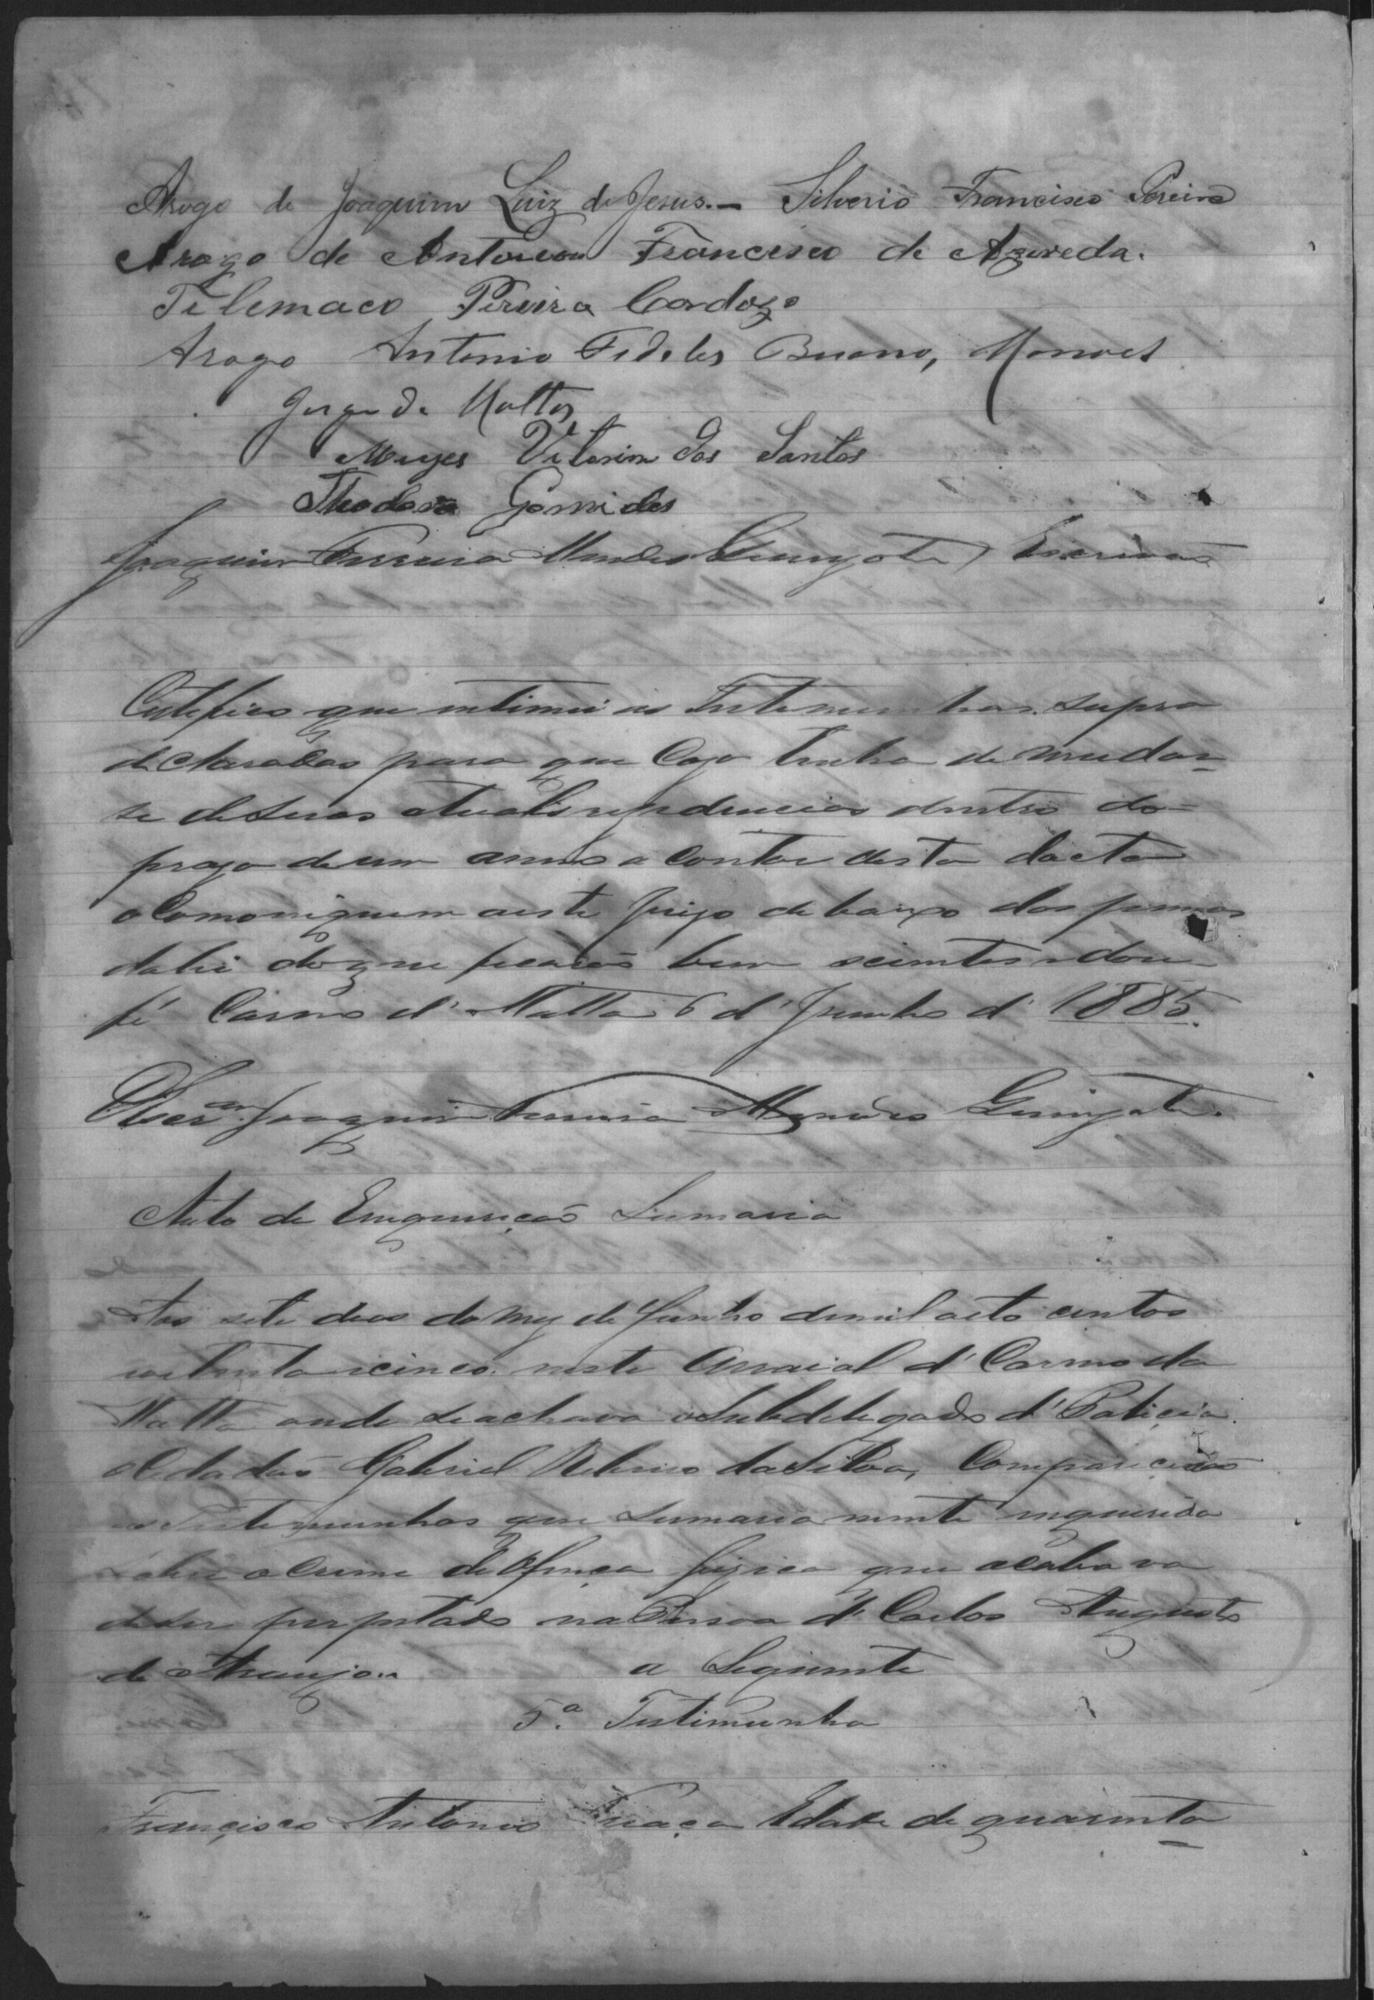 Arogo de Joaquim Luiz de Jesus.– Silverio Francisco Pereira
Arogo de Antonio Francisco de Azeveda.
Telemaco Pereira Cardozo
Arogo Antonio Fideles Bueno, Manoel
Jorge de Mattos
Vitorino dos Santos
Theodoro Gomides
Joaquim Ferreira Mendes Escrivaõ
Certefico que intimei as Testemunhas supra
declaradas para que Cazo tenha de mudar-
se de suas atuais rezidencias dentro do
prazo de um anno a Contar desta dacta
o Comoniquem a este Juizo debaixo das pennas
da lei do que ficaraõ bem scientes e dou
fé Carmo d' Matta 6 d' Junho d' 1885.
O Escram Joaquim Ferreira Mendes
Auto de Enqueriçaõ Sumaria
Aos sete dias do mez de Junho de mil oito centos
e oitenta i cinco. neste Arraial d' Carmo da
Matta onde se achava o Subdelegado d' Policia
Cidadaõ Gabriel da Silva, Compareceraõ
as Testemunhas que sumaria mente inquerida
sobre o Crime de Ofença fizica que acaba va
de ser perpetado na Pessoa d' Carlos Augusto
de Araujo.. a Seguinte
5.ª Testimunha
Francisco Antonio Edade de quarenta